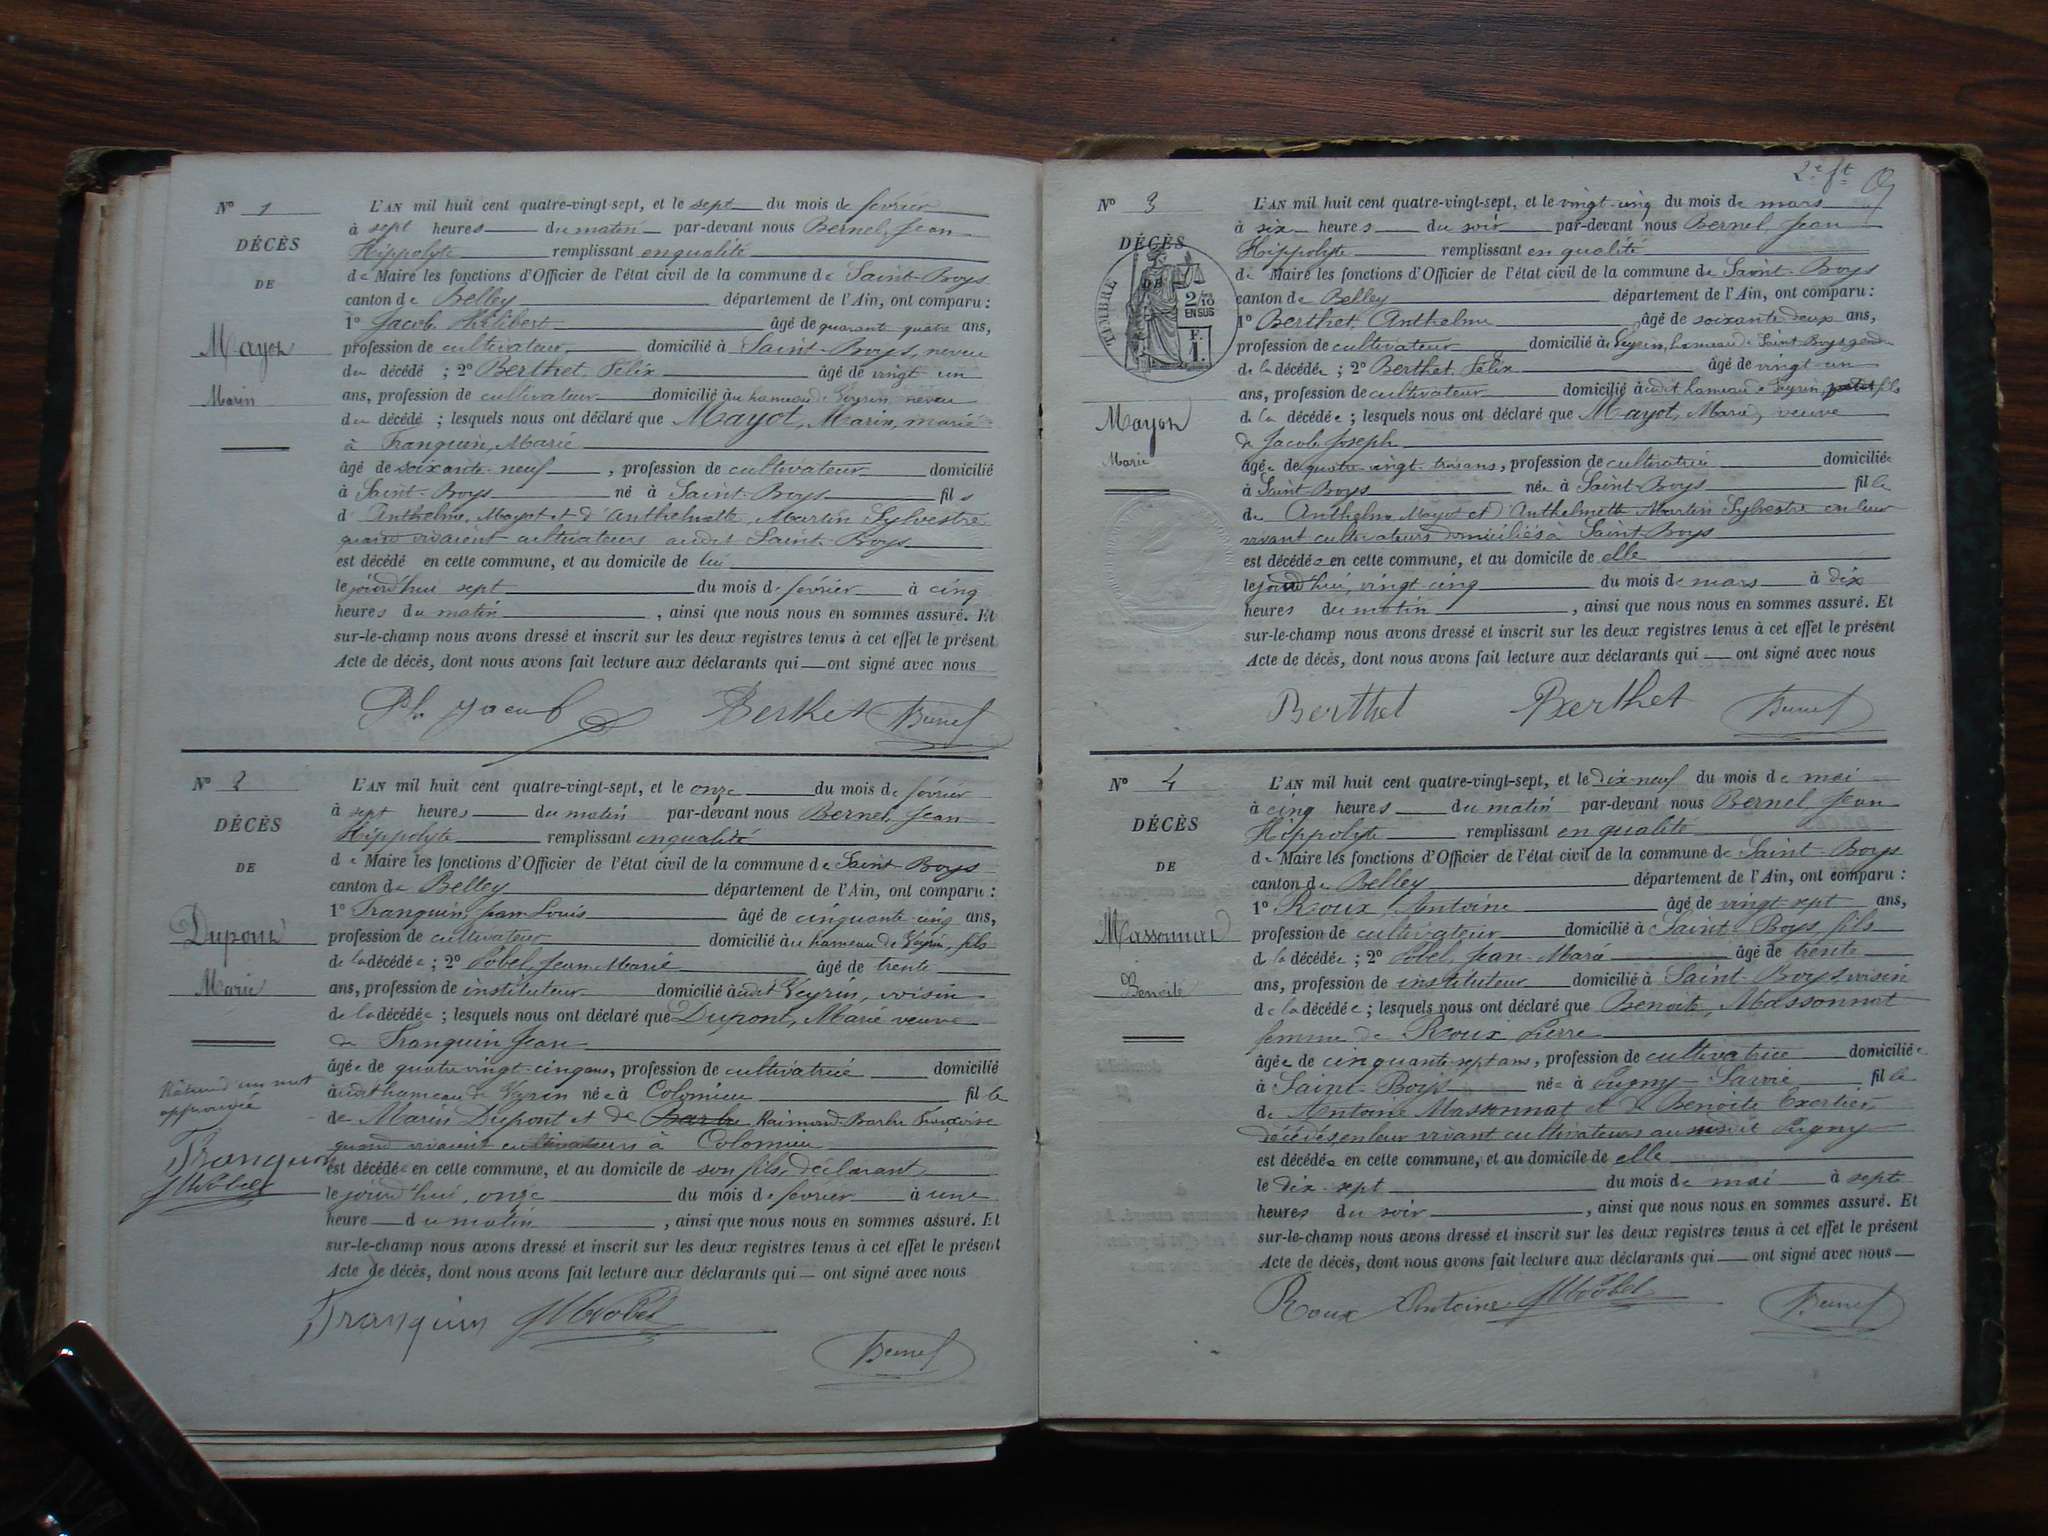 N° 1
DÉCÈS
DE
Mayot
Marin
L'AN mil huit cent quatre-vingt-sept, et le sept du mois de février
à sept heures du matin par-devant nous Bernel, Jean
Hippolyte remplissant en qualité
de Maire les fonctions d'Officier de l'état civil de la commune de Saint-Boys
canton de Belley département de l'Ain, ont comparu :
1° Jacob, Philibert âgé de quarante quatre ans,
profession de cultivateur domicilié à Saint-Boys, neveu
du décédé ; 2° Berthet, Félix âgé de vingt-un
ans, profession de cultivateur domicilié au hameau de Veyrin, neveu
du décédé ; lesquels nous ont déclaré que Mayot, Marin, marié
à Tranquin, Marie
âgé de soixante-neuf , profession de cultivateur domicilié
à Saint-Boys né à Saint-Boys fils
d'Anthelme Mayot et d'Anthelmette Martin Sylvestre
quand vivaient cultivateurs audit Saint-Boys
est décédé en cette commune, et au domicile de lui
le jourd'hui sept du mois de février à cinq
heures du matin , ainsi que nous nous en sommes assuré. Et
sur-le-champ nous avons dressé et inscrit sur les deux registres tenus à cet effet le présent
Acte de décès, dont nous avons fait lecture aux déclarants qui ont signé avec nous
Ph. Jacob Berthet Bernel
N° 2
DÉCÈS
DE
Dupont
Marie
Raimond un mot
approuvé
Tranquin
JMPobel
L'AN mil huit cent quatre-vingt-sept, et le onze du mois de février
à sept heures du matin par-devant nous Bernel, Jean
Hippolyte remplissant en qualité
de Maire les fonctions d'Officier de l'état civil de la commune de Saint-Boys
canton de Belley département de l'Ain, ont comparu :
1° Tranquin, Jean Louis âgé de cinquante-cinq ans,
profession de cultivateur domicilié au hameau de Veyrin, fils
de la décédée ; 2° Pobel, Jean-Marie âgé de trente
ans, profession de instituteur domicilié audit Veyrin, voisin
de la décédée ; lesquels nous ont déclaré que Dupont, Marie veuve
de Tranquin Jean
âgée de quatre vingt-cinq ans, profession de cultivatrice domicilié
audit hameau de Veyrin née à Colomieu fille
de Marin Dupont et de Barbe Raimond-Barbe Françoise
quand vivaient cultivateurs à Colomieu
est décédée en cette commune, et au domicile de son fils, déclarant
le jourd'hui, onze du mois de février à une
heure du matin , ainsi que nous nous en sommes assuré. Et
sur-le-champ nous avons dressé et inscrit sur les deux registres tenus à cet effet le présent
Acte de décès, dont nous avons fait lecture aux déclarants qui ont signé avec nous
Tranquin JMPobel
Bernel
2e ft
N° 3
DÉCÈS
DE
TIMBRE
2/10
EN SUS
F.
1.
Mayot
Marie
L'AN mil huit cent quatre-vingt-sept, et le vingt-cinq du mois de mars
à six heures du soir par-devant nous Bernel, Jean
Hippolyte remplissant en qualité
de Maire les fonctions d'Officier de l'état civil de la commune de Saint-Boys
canton de Belley département de l'Ain, ont comparu :
1° Berthet, Anthelme âgé de soixante deux ans,
profession de cultivateur domicilié à Veyrin, hameau de Saint-Boys gendre
de la décédée ; 2° Berthet, Félix âgé de vingt-un
ans, profession de cultivateur domicilié audit hameau de Veyrin, petit fils
de la décédée ; lesquels nous ont déclaré que Mayot, Marie, veuve
de Jacob Joseph
âgée de quatre-vingt-trois ans, profession de cultivatrice domiciliée
à Saint Boys née à Saint-Boys fille
de Anthelme Mayot et d'Anthelmette Martin Sylvestre en leur
vivant cultivateurs domiciliés à Saint-Boys
est décédée en cette commune, et au domicile de elle
le jourd'hui, vingt-cinq du mois de mars à dix
heures du matin , ainsi que nous nous en sommes assuré. Et
sur-le-champ nous avons dressé et inscrit sur les deux registres tenus à cet effet le présent
Acte de décès, dont nous avons fait lecture aux déclarants qui ont signé avec nous
Berthet Berthet Bernel
N° 4
DÉCÈS
DE
Massonnat
Benoite
L'AN mil huit cent quatre-vingt-sept, et le dix-neuf du mois de mai
à cinq heures du matin par-devant nous Bernel, Jean
Hippolyte remplissant en qualité
de Maire les fonctions d'Officier de l'état civil de la commune de Saint-Boys
canton de Belley département de l'Ain, ont comparu :
1° Roux, Antoine âgé de vingt-sept ans,
profession de cultivateur domicilié à Saint-Boys, fils
de la décédée ; 2° Pobel, Jean-Marie âgé de trente
ans, profession de instituteur domicilié à Saint-Boys, voisin
de la décédée ; lesquels nous ont déclaré que Benoite, Massonnat
femme de Roux Pierre
âgée de cinquante-sept ans, profession de cultivatrice domiciliée
à Saint-Boys née à Lugny-Savoie fille
de Antoine Massonnat et de Benoite Exertier
décédés en leur vivant cultivateurs au susdit Lugny
est décédée en cette commune, et au domicile de elle
le dix-sept du mois de mai à sept
heures du soir , ainsi que nous nous en sommes assuré. Et
sur-le-champ nous avons dressé et inscrit sur les deux registres tenus à cet effet le présent
Acte de décès, dont nous avons fait lecture aux déclarants qui ont signé avec nous
Roux Antoine JMPobel Bernel